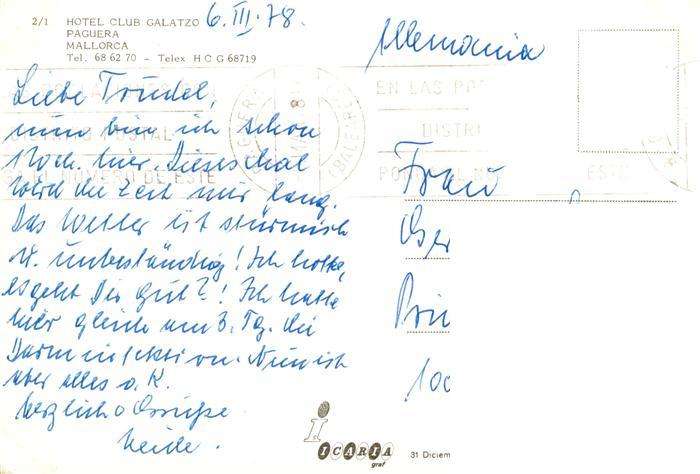 2/1 HOTEL CLUB GALATZO
PAGUERA
MALLORCA
Tel. 68 62 70 - Telex H C G 68719
6. III. 78.
Liebe Trudel,
nun bin ich schon
1 Woch. hier. Dieses Mal
wird die Zeit mir lang.
Das Wetter ist stürmisch
u. unbeständig! Ich hoffe,
es geht Dir gut?! Ich hatte
hier gleich am 3. Tg. die
Darminfektion. Nun ist
aber alles o. K.
Herzliche Grüße
Heide.
Allemania
EN LAS PO
DISTRI
Frau
Ger
Prin
100
ICARIA
graf
31 Diciem